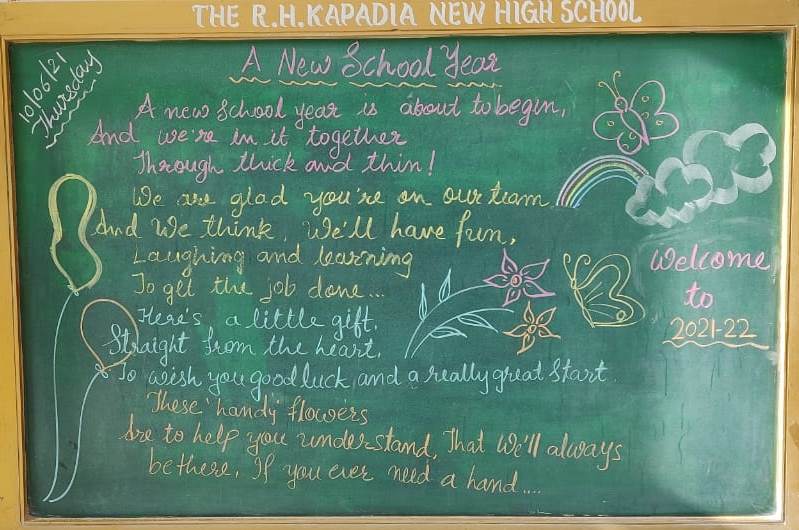 THE R.H.KAPADIA NEW HIGH SCHOOL
10/06/21
Thursday
A New School Year
A new School year is about to begin,
And we're in it together
Through thick and thin!
We are glad you're on our team
And We think, We'll have fun,
Laughing and learning
To get the job done...
Here's a little gift,
Straight from the heart,
To wish you good luck, and a really great Start.
These 'handy' flowers
Are to help you understand, That We'll always
be there, If you ever need a hand....
Welcome
to
2021-22